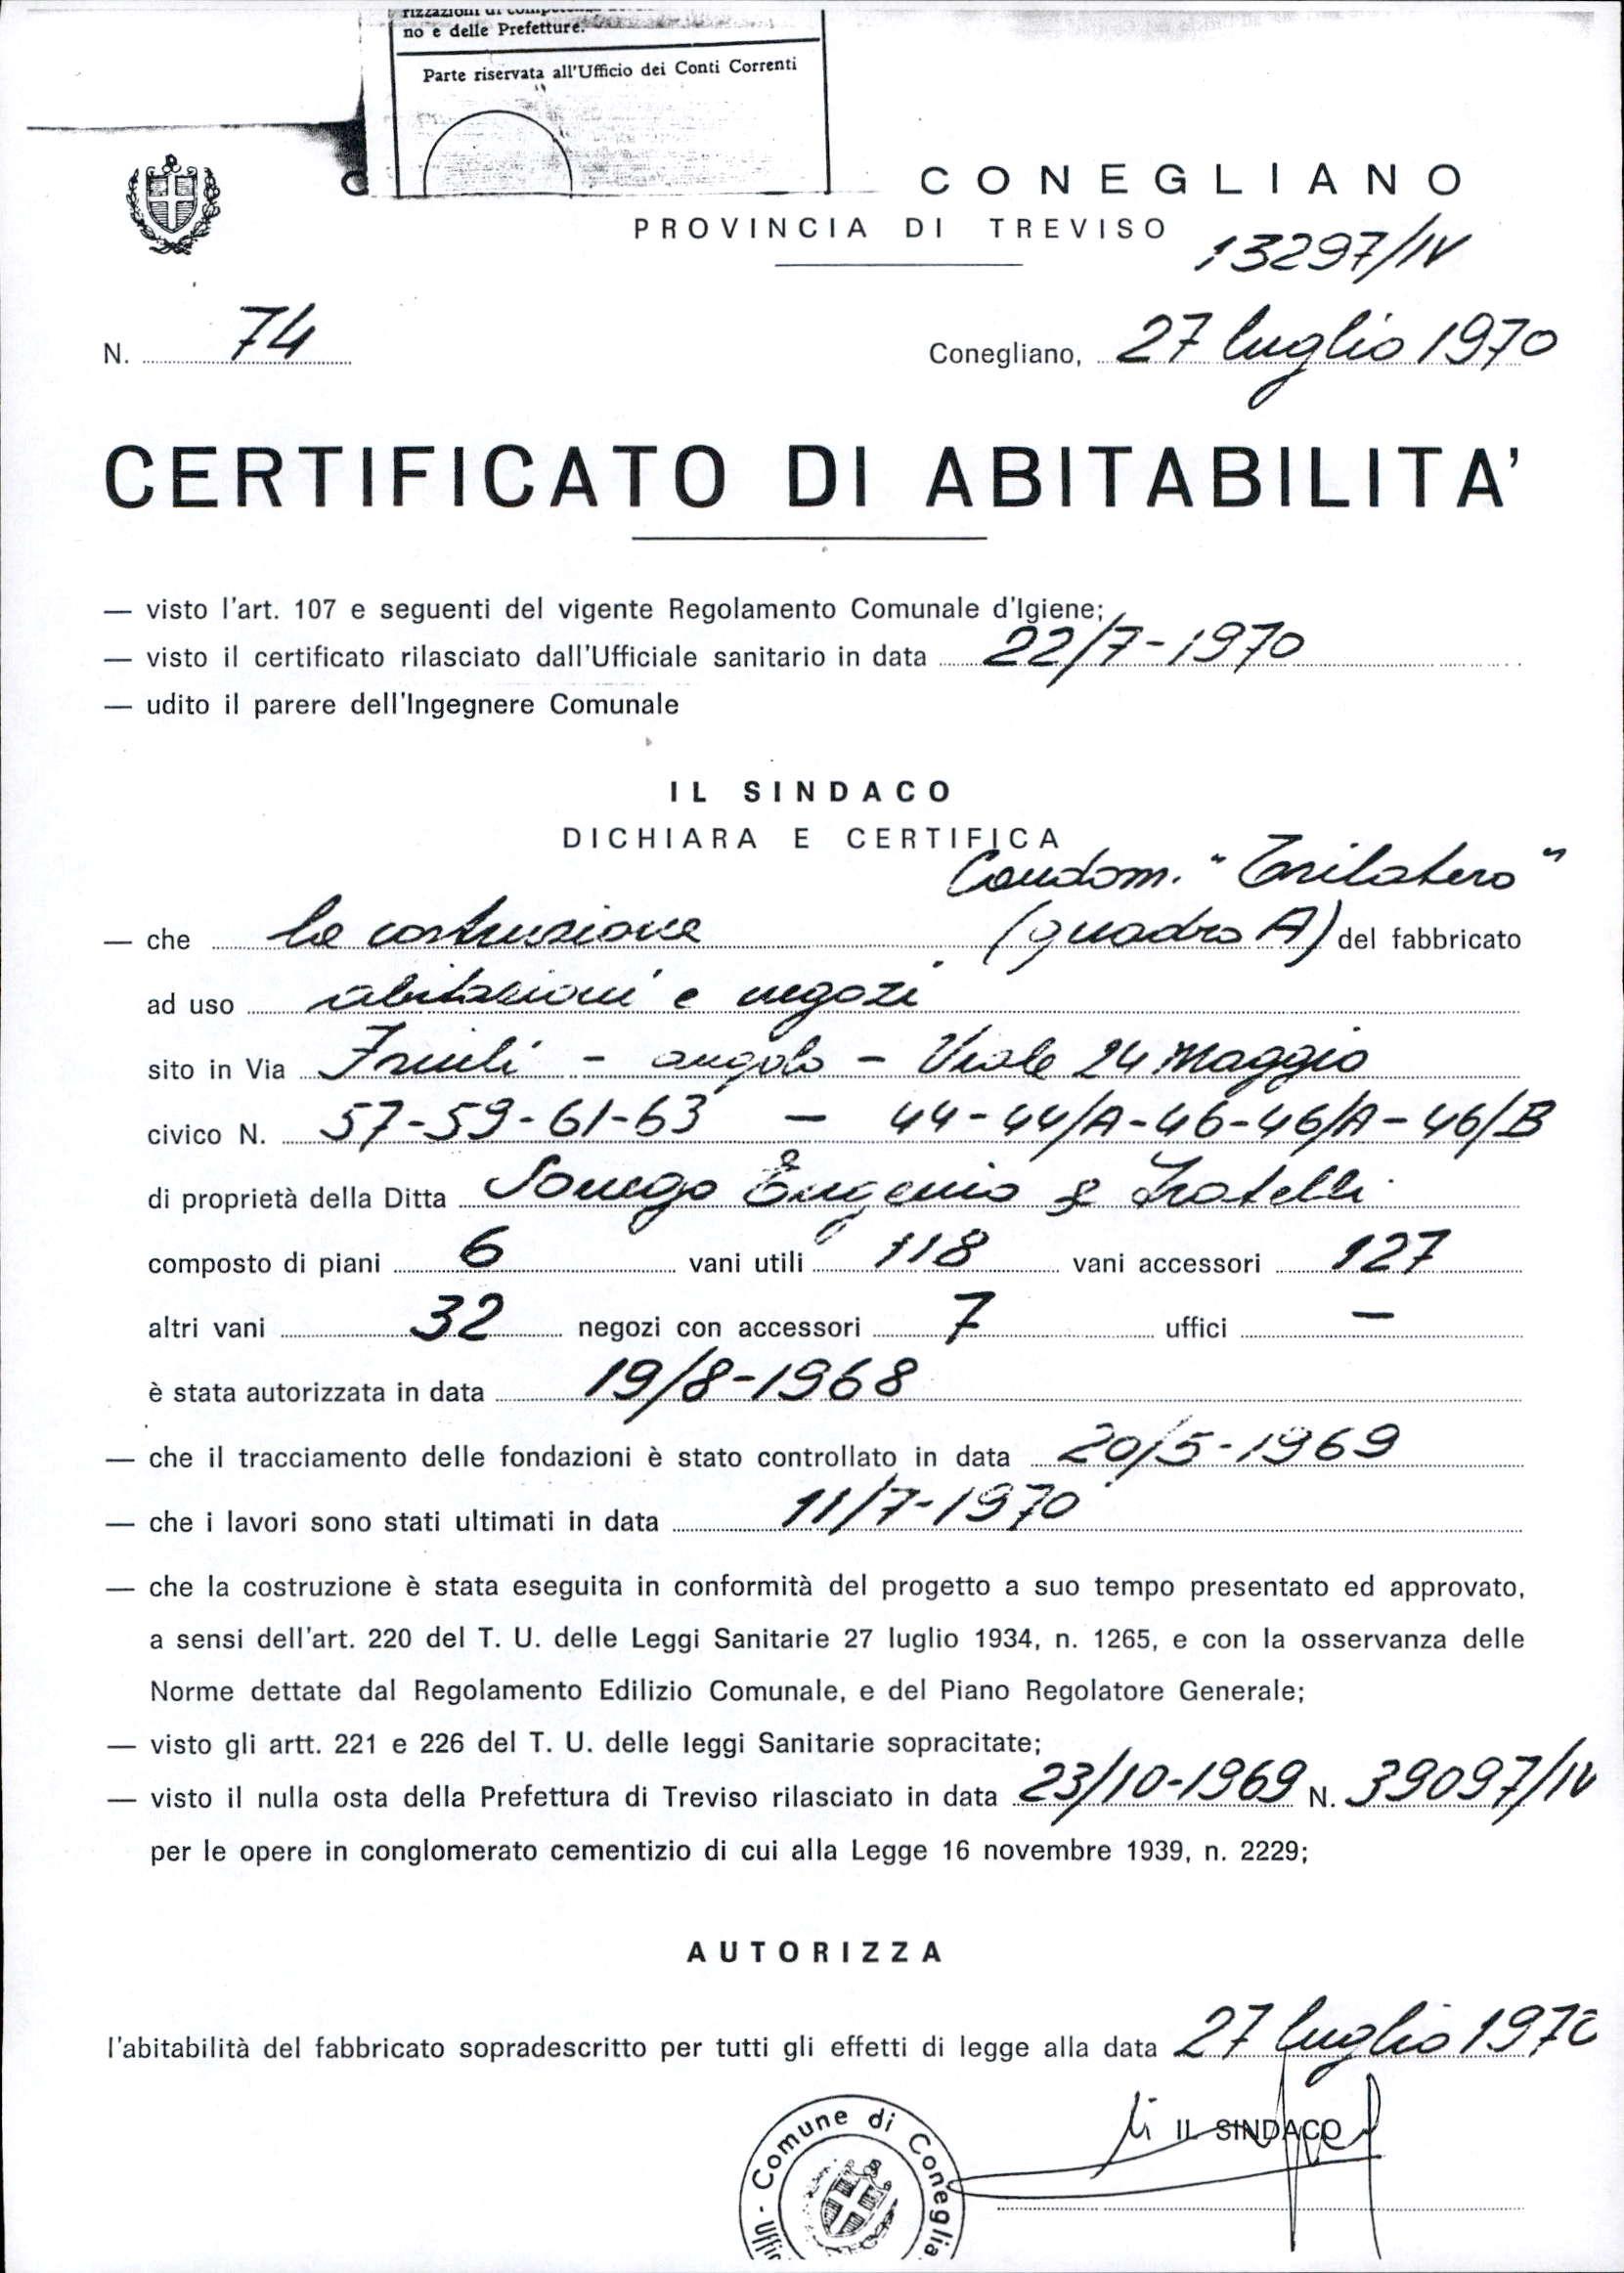 no e delle Prefetture.
Parte riservata all'Ufficio dei Conti Correnti
CONEGLIANO
PROVINCIA DI TREVISO
13297/IV
N. 74 Conegliano, 27 luglio 1970
CERTIFICATO DI ABITABILITA'
— visto l'art. 107 e seguenti del vigente Regolamento Comunale d'Igiene;
— visto il certificato rilasciato dall'Ufficiale sanitario in data 22/7-1970
— udito il parere dell'Ingegnere Comunale
IL SINDACO
DICHIARA E CERTIFICA
Condom. "Trilatero"
— che la costruzione (quadro A) del fabbricato
ad uso abitazioni e negozi
sito in Via Friuli - angolo - Viale 24 Maggio
civico N. 57-59-61-63 — 44-44/A-46-46/A-46/B
di proprietà della Ditta Sonego Eugenio & Fratelli
composto di piani 6 vani utili 118 vani accessori 127
altri vani 32 negozi con accessori 7 uffici —
è stata autorizzata in data 19/8-1968
— che il tracciamento delle fondazioni è stato controllato in data 20/5-1969
— che i lavori sono stati ultimati in data 11/7-1970
— che la costruzione è stata eseguita in conformità del progetto a suo tempo presentato ed approvato,
a sensi dell'art. 220 del T. U. delle Leggi Sanitarie 27 luglio 1934, n. 1265, e con la osservanza delle
Norme dettate dal Regolamento Edilizio Comunale, e del Piano Regolatore Generale;
— visto gli artt. 221 e 226 del T. U. delle leggi Sanitarie sopracitate;
— visto il nulla osta della Prefettura di Treviso rilasciato in data 23/10-1969 N. 39097/IV
per le opere in conglomerato cementizio di cui alla Legge 16 novembre 1939, n. 2229;
AUTORIZZA
l'abitabilità del fabbricato sopradescritto per tutti gli effetti di legge alla data 27 luglio 1970
IL SINDACO
Comune di Coneglia